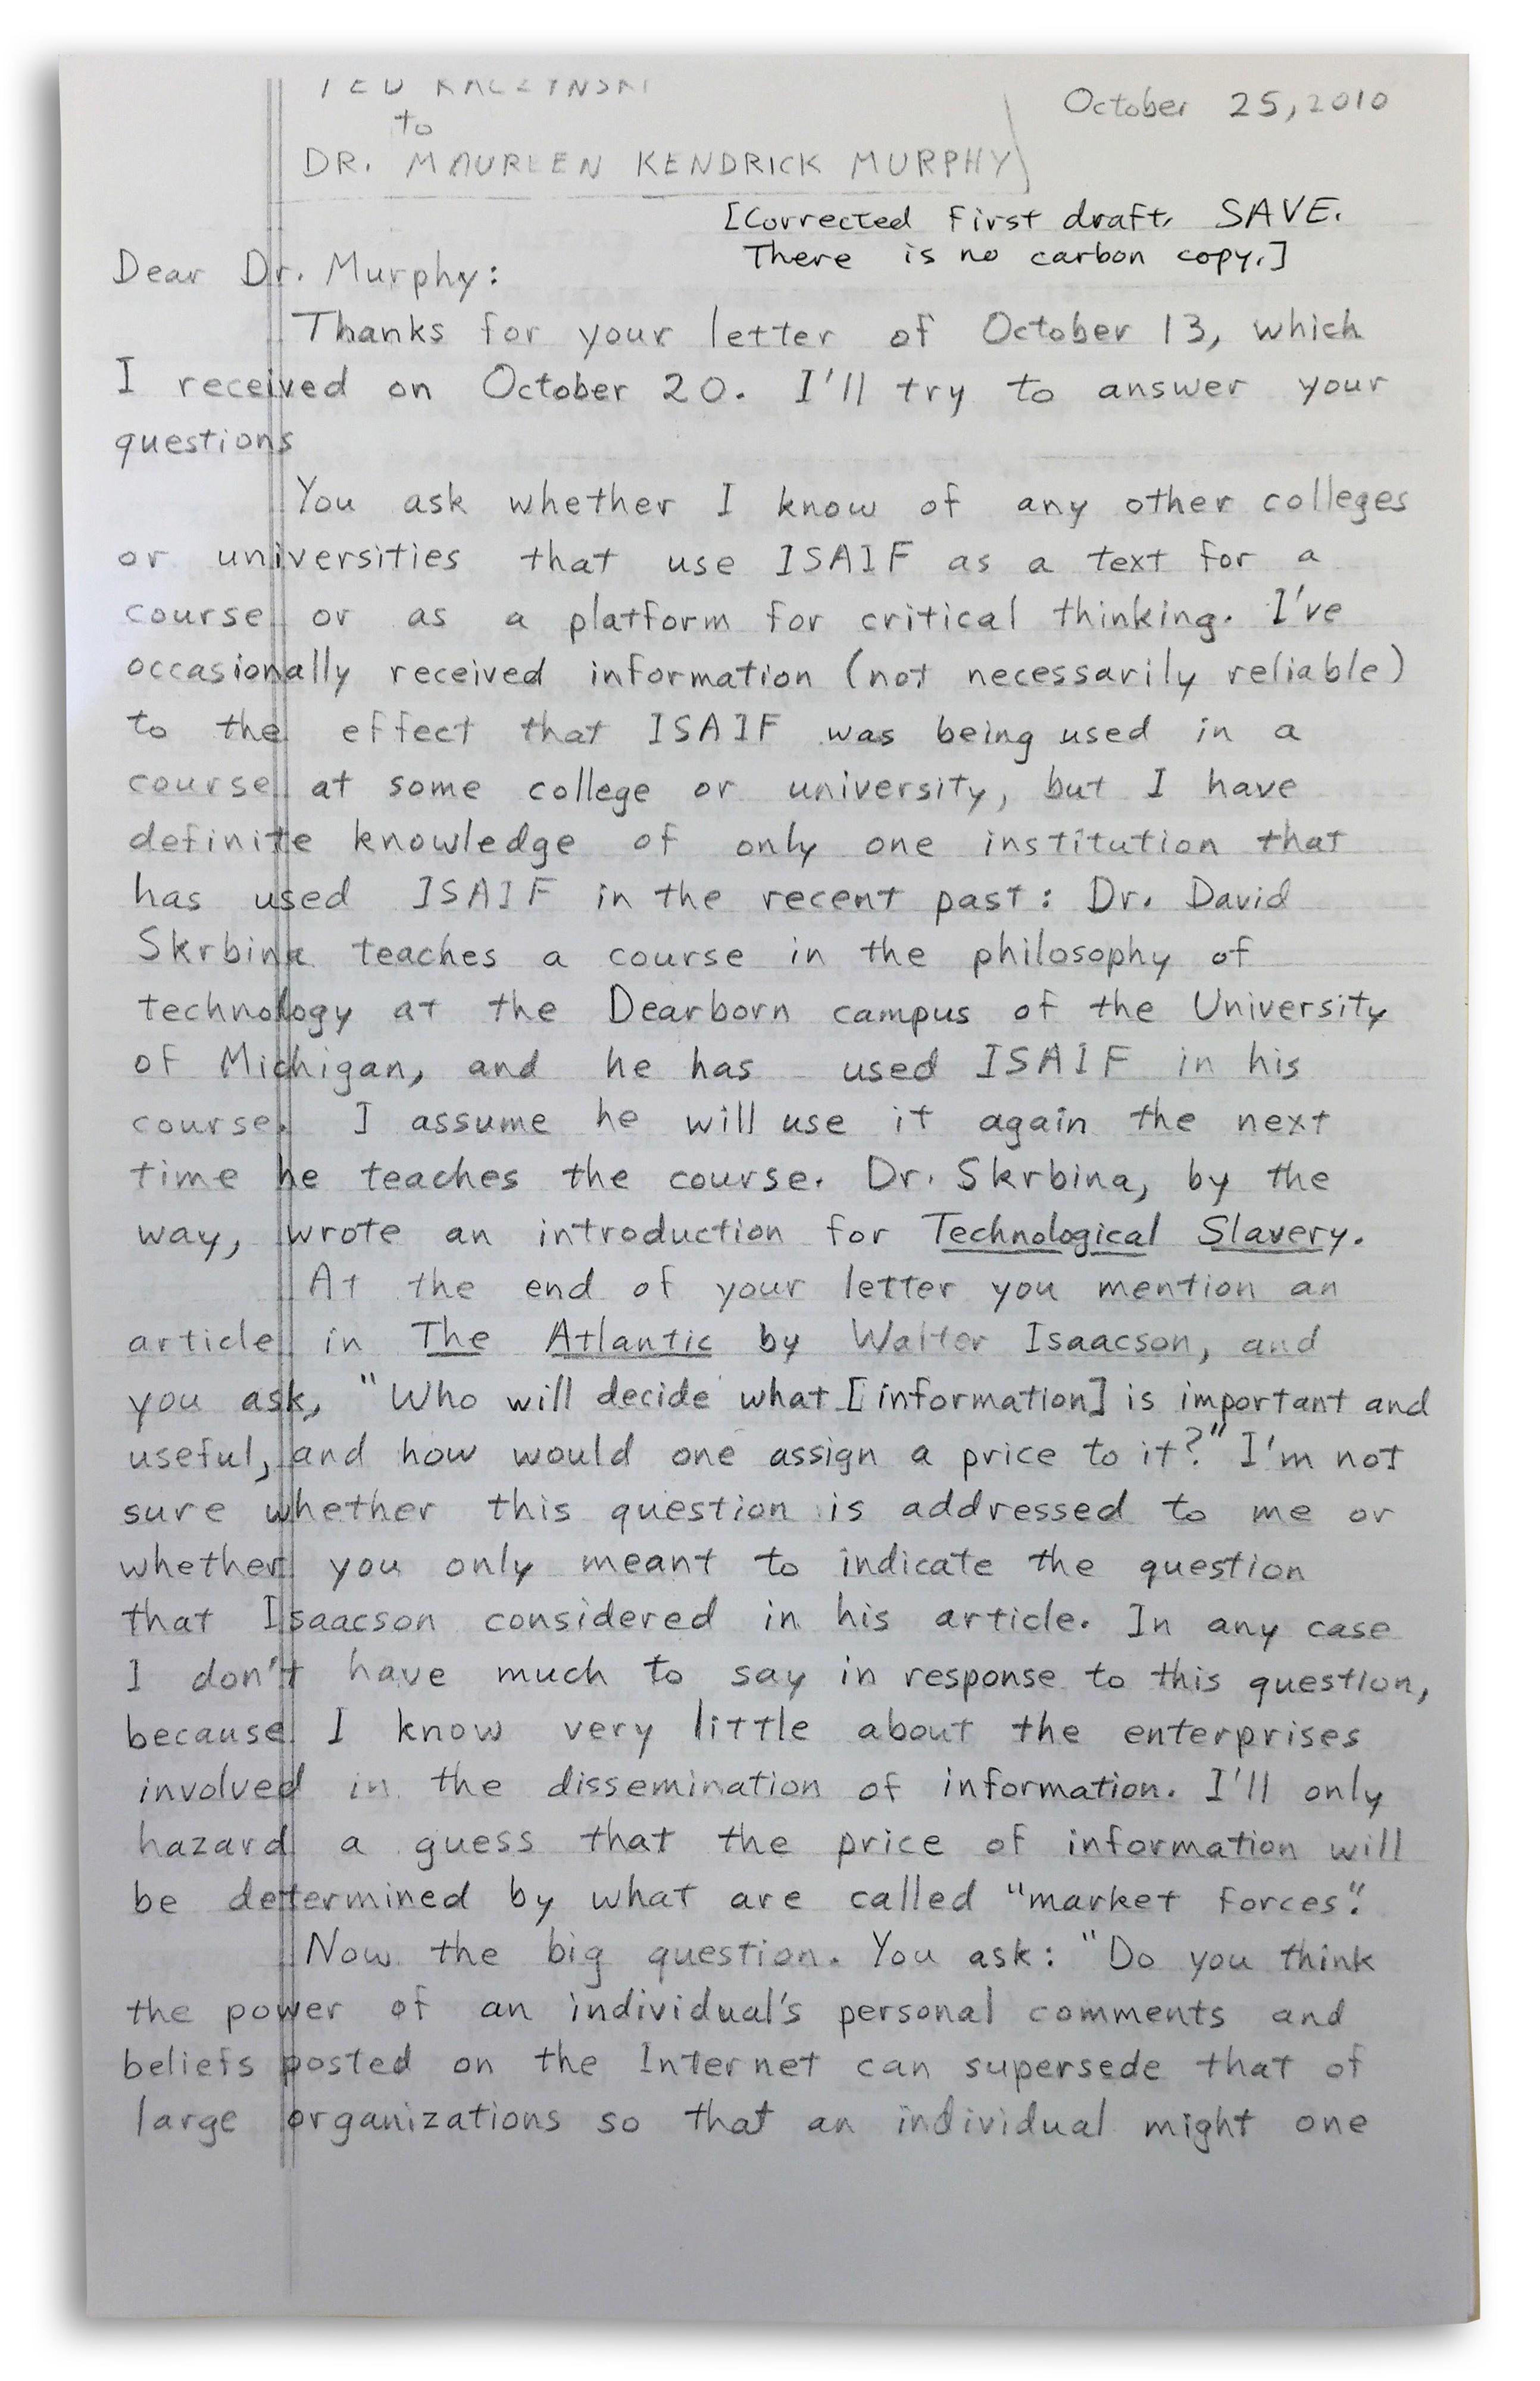 TED KACZYNSKI
to
DR. MAUREEN KENDRICK MURPHY
October 25, 2010
[Corrected first draft. SAVE.
There is no carbon copy.]
Dear Dr. Murphy:
Thanks for your letter of October 13, which
I received on October 20. I'll try to answer your
questions
You ask whether I know of any other colleges
or universities that use ISAIF as a text for a
course or as a platform for critical thinking. I've
occasionally received information (not necessarily reliable)
to the effect that ISAIF was being used in a
course at some college or university, but I have
definite knowledge of only one institution that
has used ISAIF in the recent past: Dr. David
Skrbina teaches a course in the philosophy of
technology at the Dearborn campus of the University
of Michigan, and he has used ISAIF in his
course. I assume he will use it again the next
time he teaches the course. Dr. Skrbina, by the
way, wrote an introduction for Technological Slavery.
At the end of your letter you mention an
article in The Atlantic by Walter Isaacson, and
you ask, "Who will decide what [information] is important and
useful, and how would one assign a price to it?" I'm not
sure whether this question is addressed to me or
whether you only meant to indicate the question
that Isaacson considered in his article. In any case
I don't have much to say in response to this question,
because I know very little about the enterprises
involved in the dissemination of information. I'll only
hazard a guess that the price of information will
be determined by what are called "market forces".
Now the big question. You ask: "Do you think
the power of an individual's personal comments and
beliefs posted on the Internet can supersede that of
large organizations so that an individual might one